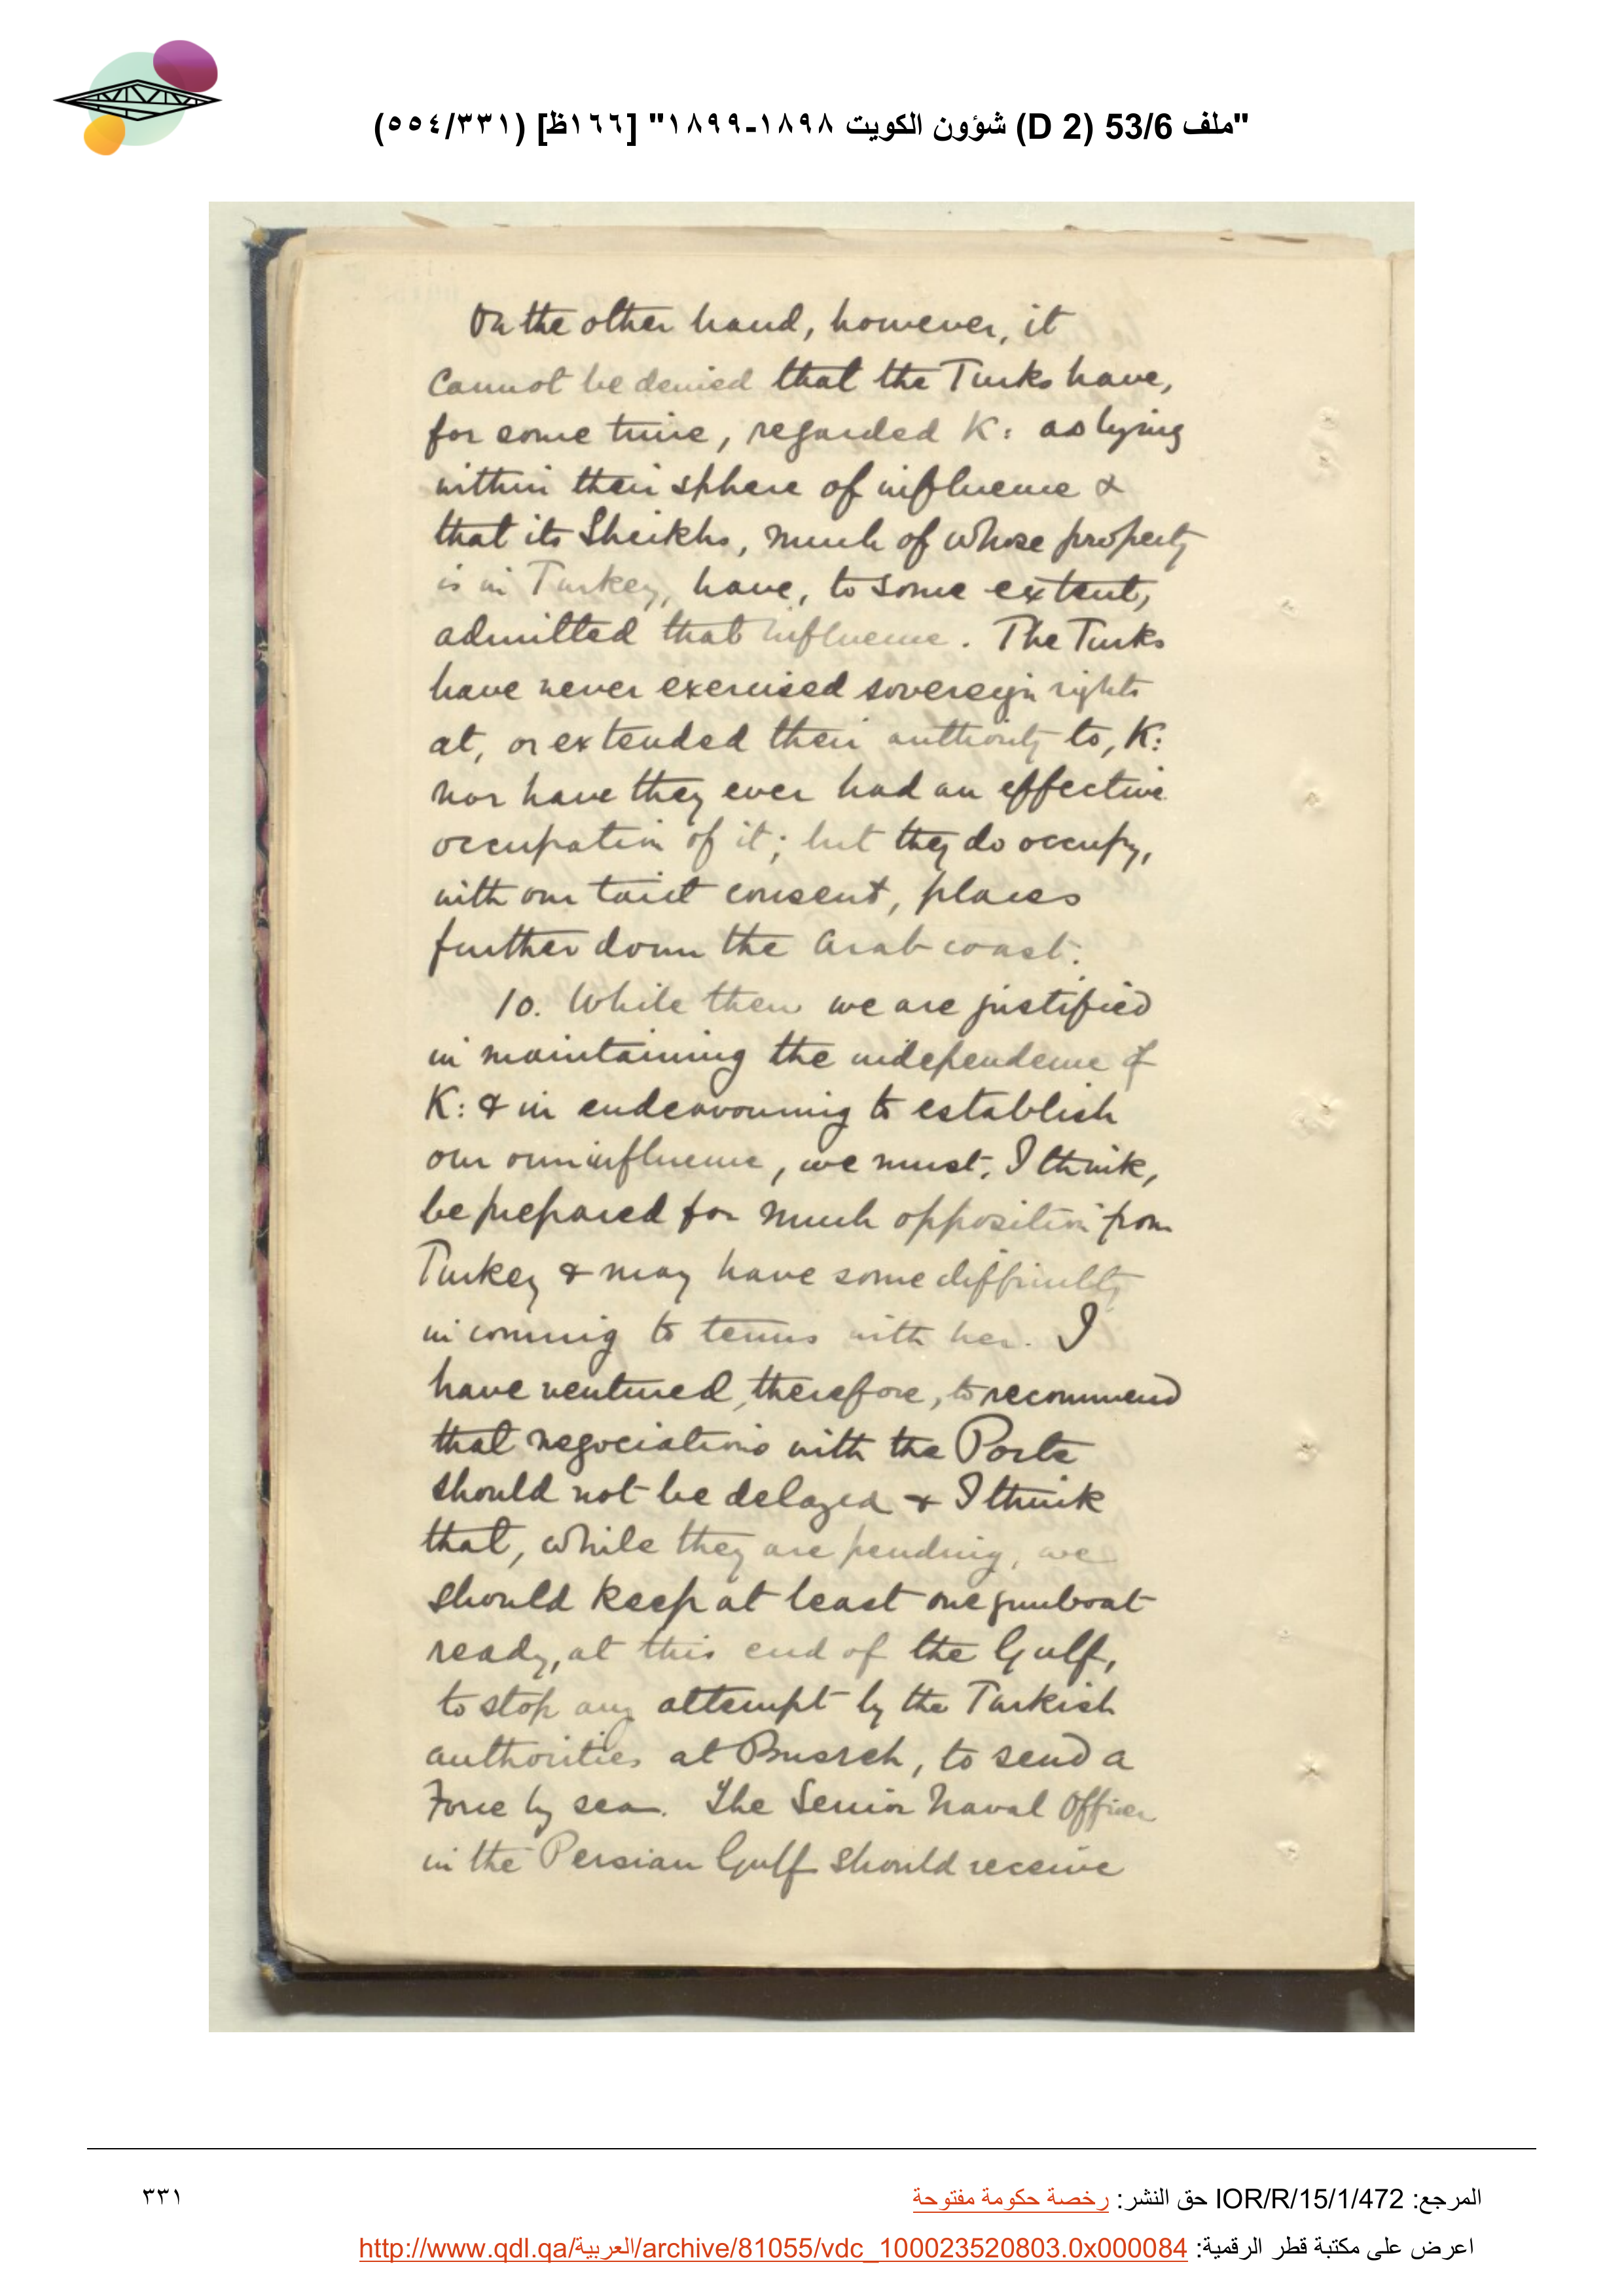 "ملف 53/6 (D 2) شؤون الكويت ١٨٩٨-١٨٩٩" [١٦٦ظ] (٥٥٤/٣٣١)
On the other hand, however, it
cannot be denied that the Turks have,
for some time, regarded K: as lying
within their sphere of influence &
that its Sheikhs, much of whose property
is in Turkey, have, to some extent,
admitted that influence. The Turks
have never exercised sovereign rights
at, or extended their authority to, K:
nor have they ever had an effective
occupation of it; but they do occupy,
with our tacit consent, places
further down the Arab coast.
10. While then we are justified
in maintaining the independence of
K: & in endeavouring to establish
our own influence, we must, I think,
be prepared for much opposition from
Turkey & may have some difficulty
in coming to terms with her. I
have ventured, therefore, to recommend
that negociations with the Porte
should not be delayed & I think
that, while they are pending, we
should keep at least one gunboat
ready, at this end of the Gulf,
to stop any attempt by the Turkish
authorities at Busreh, to send a
Force by sea. The Senior Naval Officer
in the Persian Gulf should receive
المرجع: IOR/R/15/1/472 حق النشر: رخصة حكومة مفتوحة
٣٣١
اعرض على مكتبة قطر الرقمية: http://www.qdl.qa/العربية/archive/81055/vdc_100023520803.0x000084